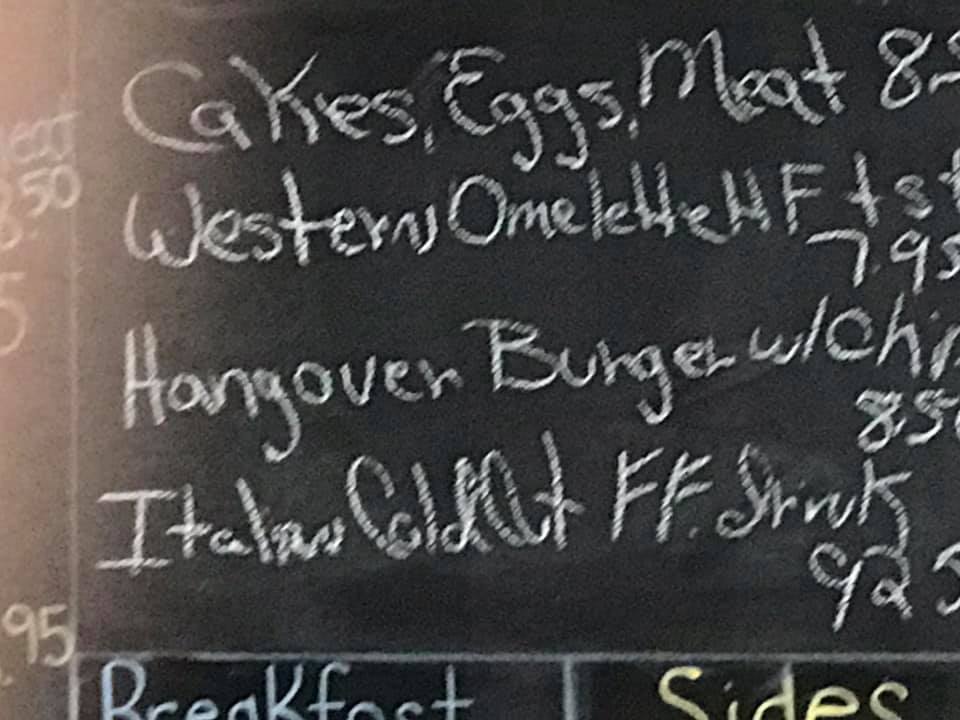 Cakes, Eggs, Meat
Western Omelette HF tst
7.95
Hangover Burger w/Chi
8.50
Italian Cold Cut FF. Drink
925
50
95
Breakfast
Sides